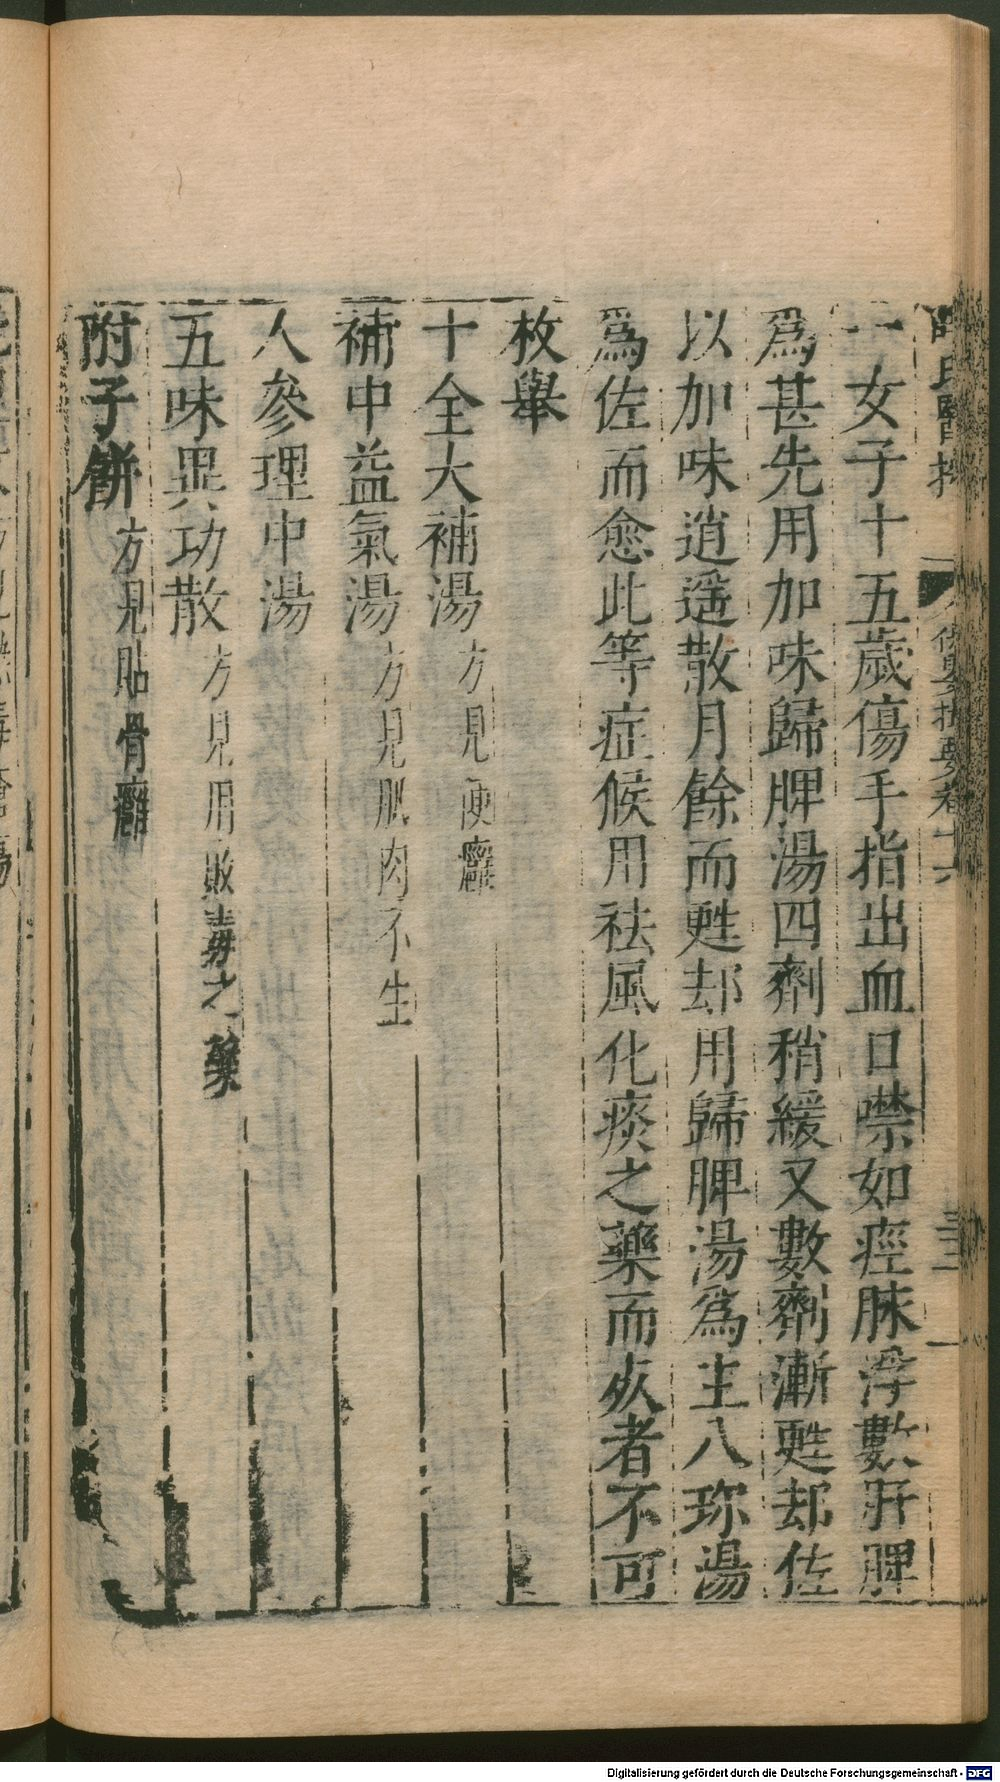 一女子十五歲傷手指出血口噤如痙脉浮數肝脾
爲甚先用加味歸脾湯四劑稍緩又數劑漸甦却佐
以加味逍遥散月餘而甦却用歸脾湯爲主八珎湯
爲佐而愈此等症候用祛風化痰之藥而殀者不可
枚舉
十全大補湯方見便癰
補中益氣湯方見肌肉不生
人參理中湯
五味異功散方見用敗毒之藥
附子餅方見貼骨癰
Digitalisierung gefördert durch die Deutsche Forschungsgemeinschaft - DFG